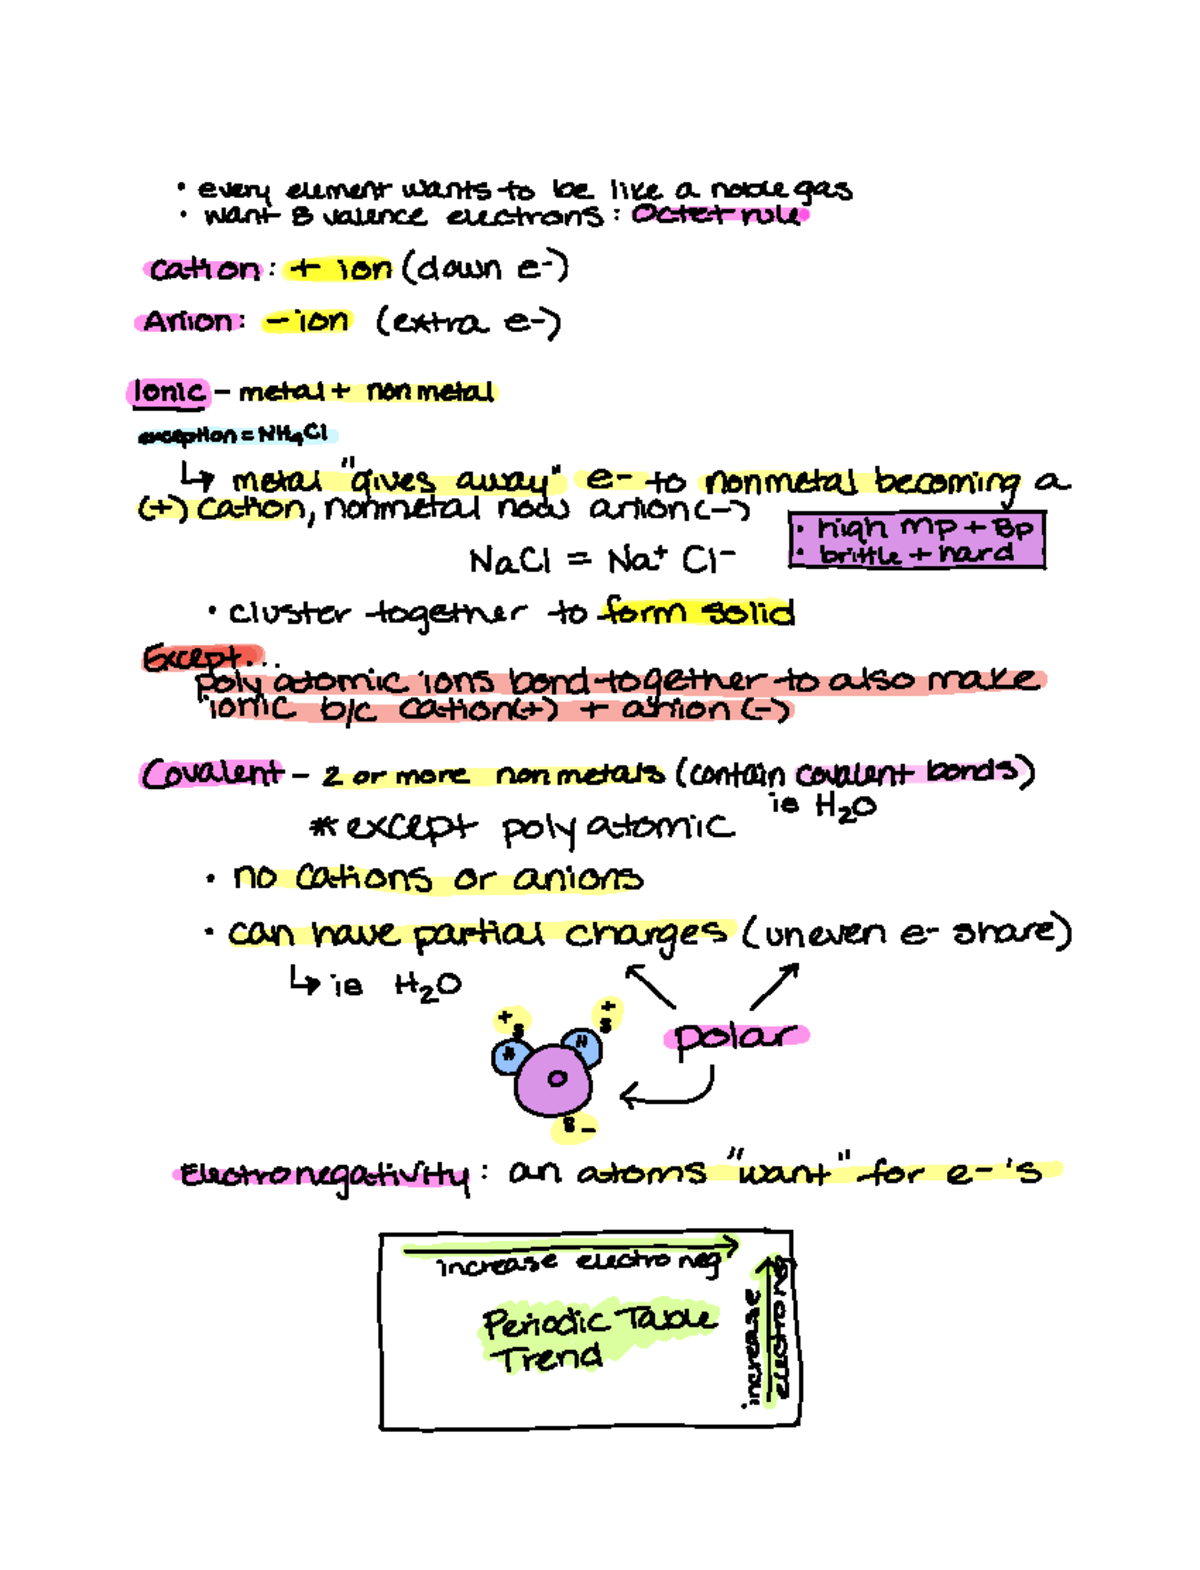 • every element wants to be like a noble gas
• want 8 valence electrons : Octet rule
cation : + ion (down e-)
Anion: - ion (extra e-)
Ionic - metal + nonmetal
exception = NH4Cl
↳ metal "gives away" e- to nonmetal becoming a
(+) cation, nonmetal now anion (-)
• high mp + Bp
• brittle + hard
NaCl = Na⁺ Cl⁻
• cluster together to form solid
Except...
poly atomic ions bond together to also make
ionic b/c cation(+) + anion (-)
Covalent - 2 or more nonmetals (contain covalent bonds)
ie H₂O
* except poly atomic
• no cations or anions
• can have partial charges (uneven e- share)
↳ ie H₂O
+ +
s s
H H
O
polar
s -
Electronegativity : an atoms "want" for e-'s
increase electro neg
increase
electro neg
Periodic Table
Trend